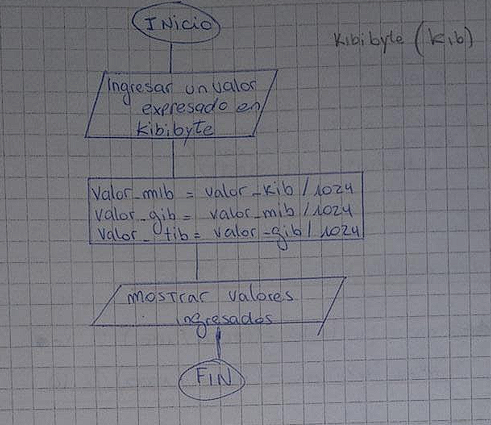 INicio
Kibibyle (kib)
Ingresar un valor
expresado en
kibibyte
Valor_mib = valor_kib / 1024
Valor_gib = valor_mib / 1024
Valor_tib = valor_gib / 1024
mostrar valores
ingresados
FIN